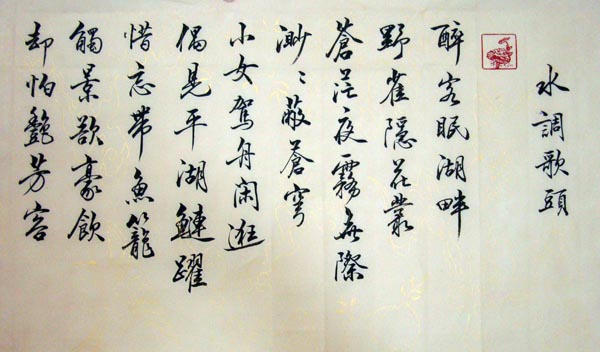 水調歌頭
醉客眠湖畔
野雀隱花叢
蒼茫夜霧無際
渺渺蔽蒼穹
小女駕舟闲逛
偶見平湖鰱躍
惜忘帶魚籠
觸景欲豪飲
却怕艷芳容